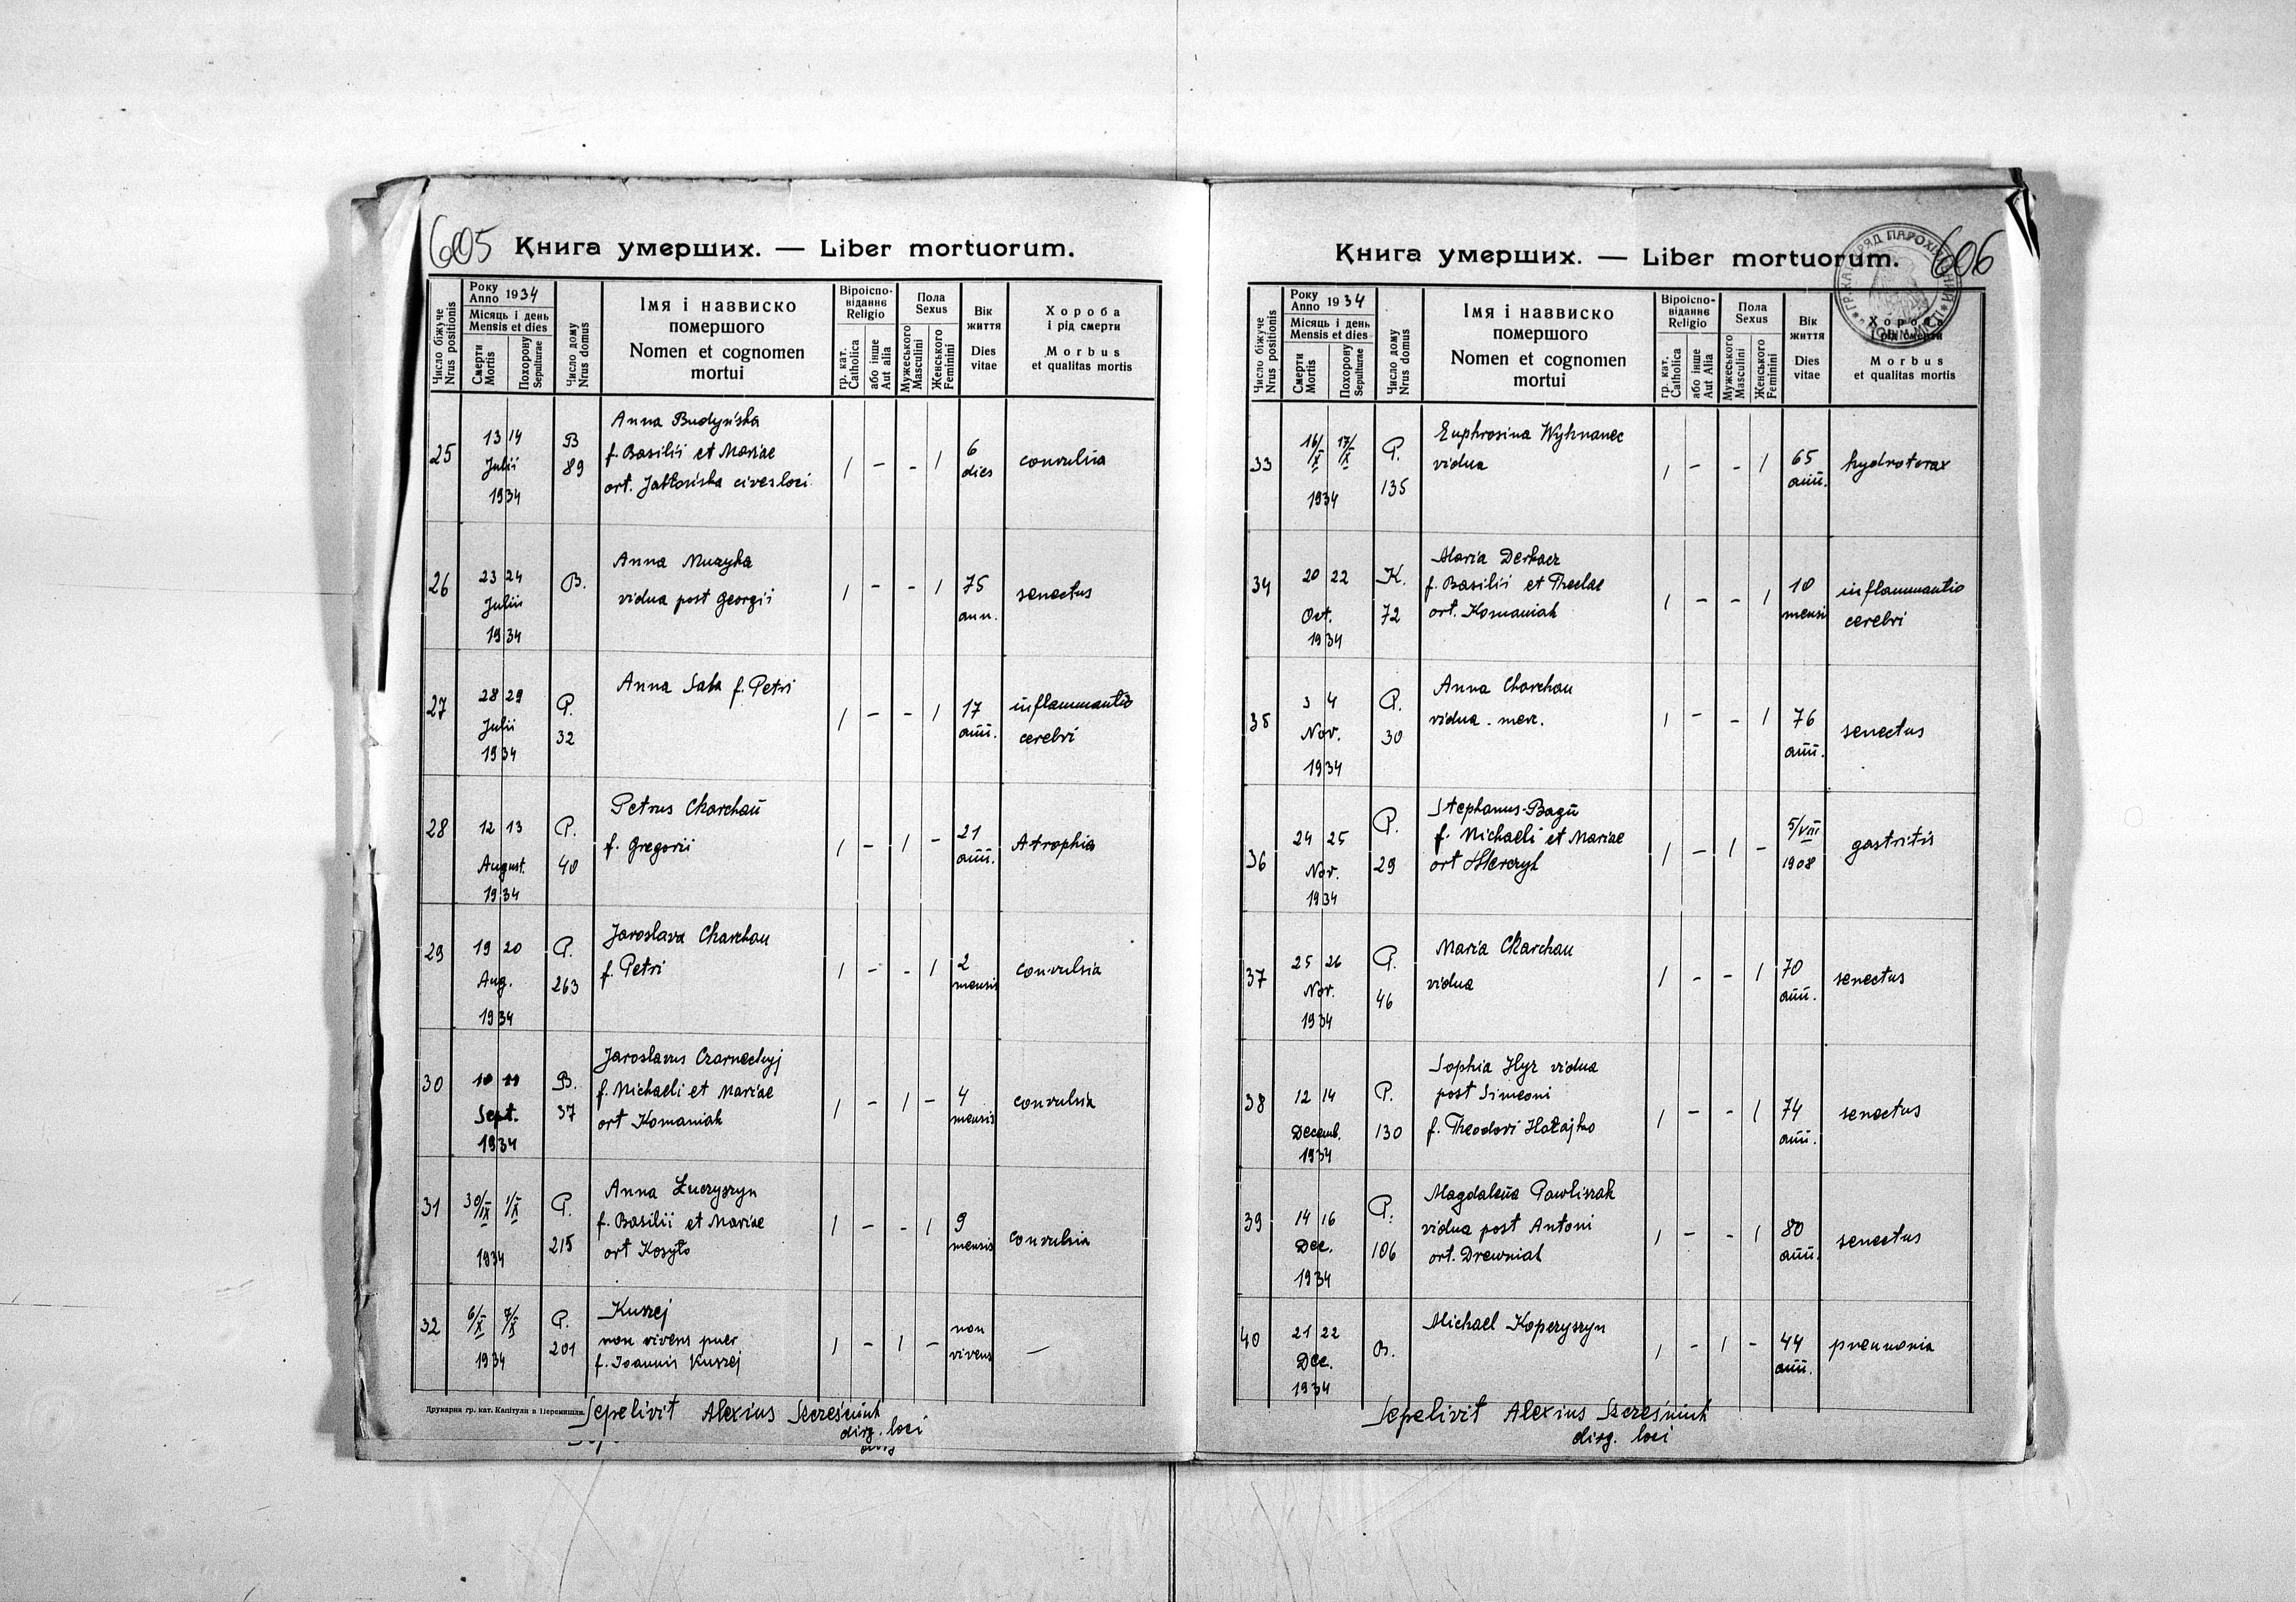 605
Книга умерших. — Liber mortuorum.
Число біжуче
Nrus positionis
Року
Anno 1934
Місяць і день
Mensis et dies
Смерти
Mortis
Похорону
Sepulturae
Число дому
Nrus domus
Імя і наввиско
помершого
Nomen et cognomen
mortui
Віроіспо-
віданнє
Religio
гр. кат.
Catholica
або інше
Aut alia
Пола
Sexus
Мужеського
Masculini
Женського
Feminini
Вік
життя
Dies
vitae
Хороба
і рід смерти
Morbus
et qualitas mortis
25
13 14
Julii
1934
B
89
Anna Budyńska
f. Basilii et Mariae
ort. Jabłońska cives loci
1 - - 1
6
dies
convulsia
26
23 24
Julii
1934
B.
Anna Muzyka
vidua post Georgii
1 - - 1
75
ann.
senectus
27
28 29
Julii
1934
P.
32
Anna Saba f. Petri
1 - - 1
17
ann.
inflammantio
cerebri
28
12 13
August.
1934
P.
40
Petrus Charchań
f. Gregorii
1 - 1 -
21
ann.
Atrophia
29
19 20
Aug.
1934
P.
263
Jaroslava Charchan
f. Petri
1 - - 1
2
mensis
convulsia
30
10 11
Sept.
1934
B.
37
Jaroslavus Czarneckyj
f. Michaeli et Mariae
ort Komaniak
1 - 1 -
4
mensis
convulsia
31
30/IX 1/X
1934
P.
215
Anna Łuczyszyn
f. Basilii et Mariae
ort Kosyło
1 - - 1
9
mensis
convulsia
32
6/X 7/X
1934
P.
201
Kuszej
non vivens puer
f. Joannis Kuszej
1 - 1 -
non
vivens
—
Друкарня гр. кат. Капітули в Перемишли.
Sepelivit Alexius Szcześniuk
dirg. loci
606
Книга умерших. — Liber mortuorum.
Число біжуче
Nrus positionis
Року
Anno 1934
Місяць і день
Mensis et dies
Смерти
Mortis
Похорону
Sepulturae
Число дому
Nrus domus
Імя і наввиско
помершого
Nomen et cognomen
mortui
Віроіспо-
віданнє
Religio
гр. кат.
Catholica
або інше
Aut Alia
Пола
Sexus
Мужеського
Masculini
Женського
Feminini
Вік
життя
Dies
vitae
Хороба
і рід смерти
Morbus
et qualitas mortis
33
16/X 17/X
1934
P.
135
Euphrosina Wyhnanec
vidua
1 - - 1
65
ann.
hydrotorax
34
20 22
Oct.
1934
K.
72
Maria Derkacz
f. Basilii et Theclae
ort. Komaniak
1 - - 1
10
mensi
inflammantio
cerebri
35
3 4
Nov.
1934
P.
30
Anna Charchan
vidua . merc.
1 - - 1
76
ann.
senectus
36
24 25
Nov.
1934
P.
29
Stephanus Bagń
f. Michaeli et Mariae
ort
1 - 1 -
5/VIII
1908
gastritis
37
25 26
Nov.
1934
P.
46
Maria Charchan
vidua
1 - - 1
70
ann.
senectus
38
12 14
Decemb.
1934
P.
130
Sophia Hyr vidua
post Simeoni
f. Theodori Hołajko
1 - - 1
74
ann.
senectus
39
14 16
Dec.
1934
P.
106
Magdalena Pawliszak
vidua post Antoni
ort. Drewniak
1 - - 1
80
ann.
senectus
40
21 22
Dec.
1934
B.
Michael Koperyszyn
1 - 1 -
44
ann.
pneumonia
Sepelivit Alexius Szcześniuk
dirg. loci